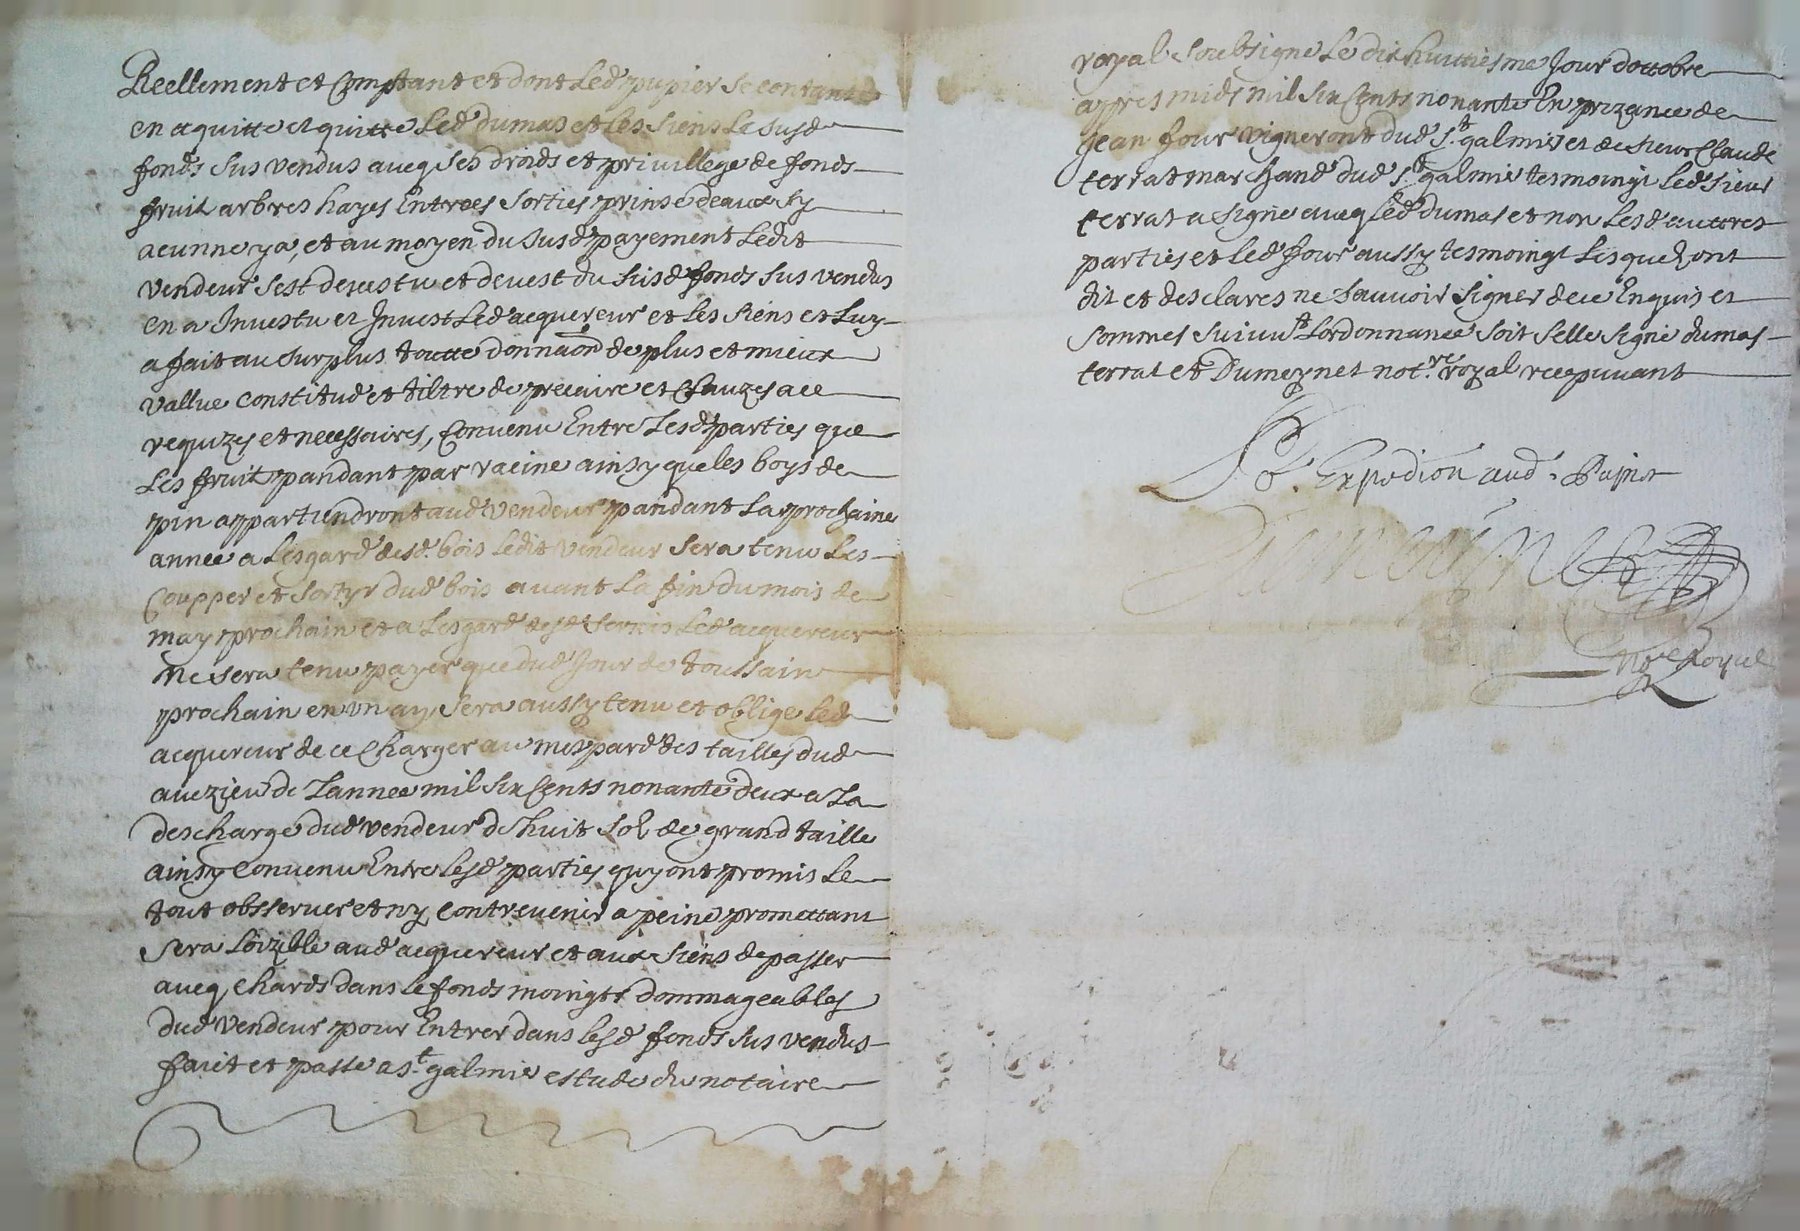 Reellement et Comptant et dont led pupier se contante
en acquitte et quitte led dumas et les siens le susd
fonds sus vendus avecq ses droids et privillege de fonds
fruit arbres hayes Entrees sorties prinse deaux sy
aucunne ya, et au moyen du susd payement ledit
vendeur sest devestu et devest du susd fonds sus vendus
en a Investu et Invest led acquereur et les siens et luy
a fait au surplus toutte donnaōn de plus et mieux
vallue constitud et tiltre de precaire et Clauzes a ce
requizes et necessaires, Convenu Entre lesd parties que
Les fruit pandant par racine ainsy que les boys de
pin appartiendront aud vendeur pandant la prochaine
annee a lesgard desd. bois ledit vendeur sera tenu les
Coupper et sortyr dud bois avant la fin du mois de
may prochain et a lesgard desd led acquereur
ne sera tenu payer que dud Jour de toussaint
prochain en un an, sera aussy tenu et oblige led
acquereur de ce Charger au mespard des tailles dud
avezieu de Lannee mil six Cents nonante deux a la
descharge dud vendeur de huit sol de grand taille
ainsy Convenu Entre lesd parties quy ont promis le
tout obsserver et ny contrevenir a peine promettant
sera loizible aud acquereur et aux siens de passer
avecq chards dans le fonds moingts dommageables
dud vendeur pour Entrer dans lesd fonds sus vendus
fait et passe a St galmie estude du notaire
royal soubsigne le dix huictiesme Jour doctobre
appres midy mil six Cents nonante En prezance de
Jean four vigneront dud St galmier et de sieur Claude
terrat marchand dud St galmie tesmoingt led sieur
terrat a signe avecq led dumas et non lesd auttres
parties et led four aussy tesmoingt lesquels ont
dit et desclares ne sauvoir signer de ce Enquis et
sommes suivt Lordonnance soit selle signe dumas
terrat et Dumeynet notre royal recepuvant
Po. Expedion aud.
Dumeynet
Nore Royal